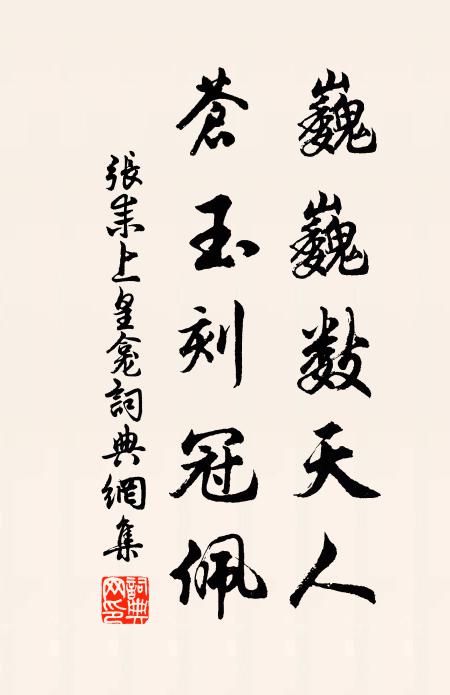 巍巍数天人
蒼玉刻冠佩
張耒上皇龛詞典網集
詞典网印